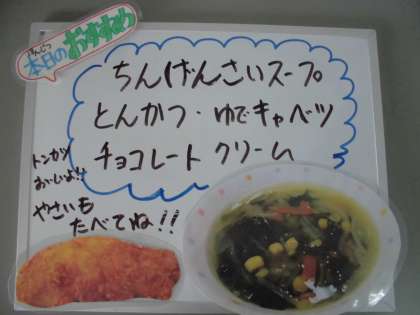 本日のおすすめ
ちんげんさいスープ
とんかつ・ゆでキャベツ
チョコレートクリーム
トンカツ
おいしいよ!!
やさいも
たべてね!!